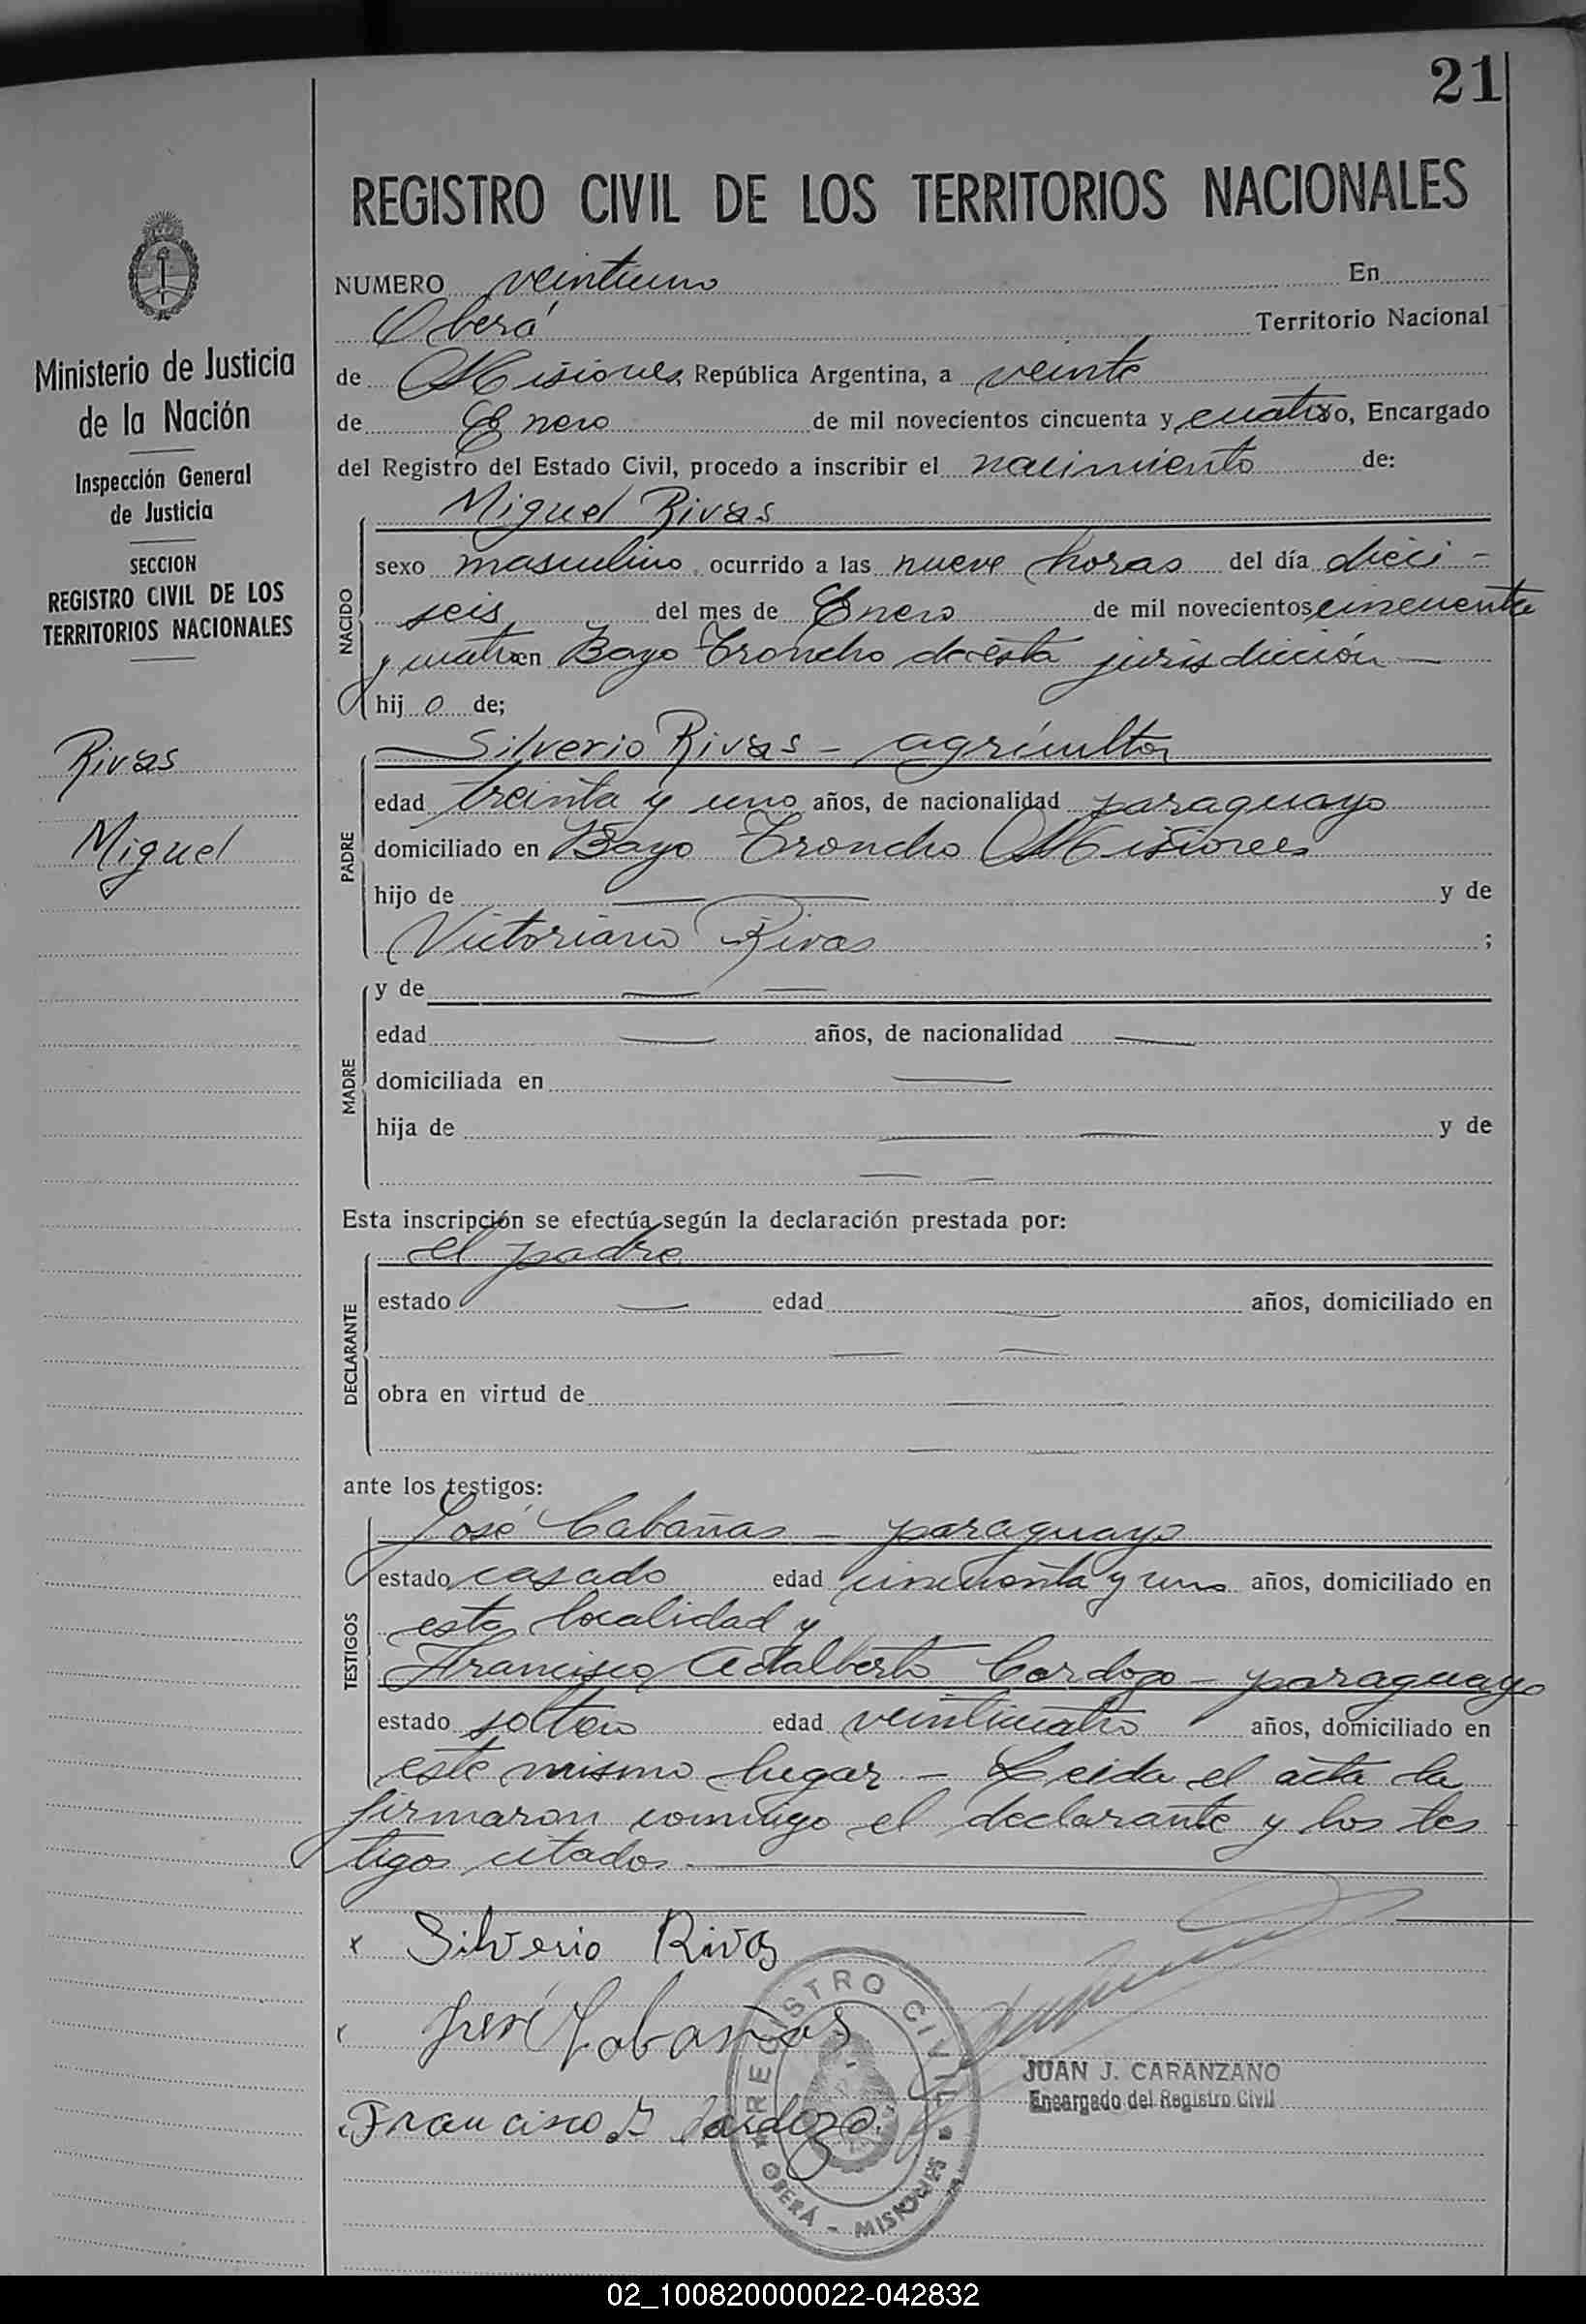 21
REGISTRO CIVIL DE LOS TERRITORIOS NACIONALES
Ministerio de Justicia
de la Nación
Inspección General
de Justicia
SECCION
REGISTRO CIVIL DE LOS
TERRITORIOS NACIONALES
Rivas
Miguel
NUMERO veintiuno En
Oberá Territorio Nacional
de Misiones República Argentina, a veinte
de Enero de mil novecientos cincuenta y cuatro, Encargado
del Registro del Estado Civil, procedo a inscribir el nacimiento de:
NACIDO
Miguel Rivas
sexo masculino ocurrido a las nueve horas del día dieci-
seis del mes de Enero de mil novecientos cincuenta
y cuatro en Bayo Troncho de esta jurisdicción —
hijo de;
PADRE
Silverio Rivas - agricultor
edad treinta y uno años, de nacionalidad paraguayo
domiciliado en Bayo Troncho Misiones
hijo de — — y de
Victoriana Rivas ;
MADRE
y de — —
edad — años, de nacionalidad —
domiciliada en —
hija de — — y de
— —
Esta inscripción se efectúa según la declaración prestada por:
DECLARANTE
el padre
estado — edad — años, domiciliado en
— —
obra en virtud de —
— —
ante los testigos:
TESTIGOS
José Cabañas - paraguayo
estado casado edad cincuenta y uno años, domiciliado en
esta localidad y
Francisco Adalberto Cardozo - paraguayo
estado soltero edad veinticuatro años, domiciliado en
este mismo lugar - Leida el acta la
firmaron conmigo el declarante y los tes
tigos citados. —
x Silverio Rivas
x José Cabañas
Francisco Cardozo
REGISTRO CIVIL
OBERÁ - MISIONES
JUAN J. CARANZANO
Encargado del Registro Civil
02_100820000022-042832